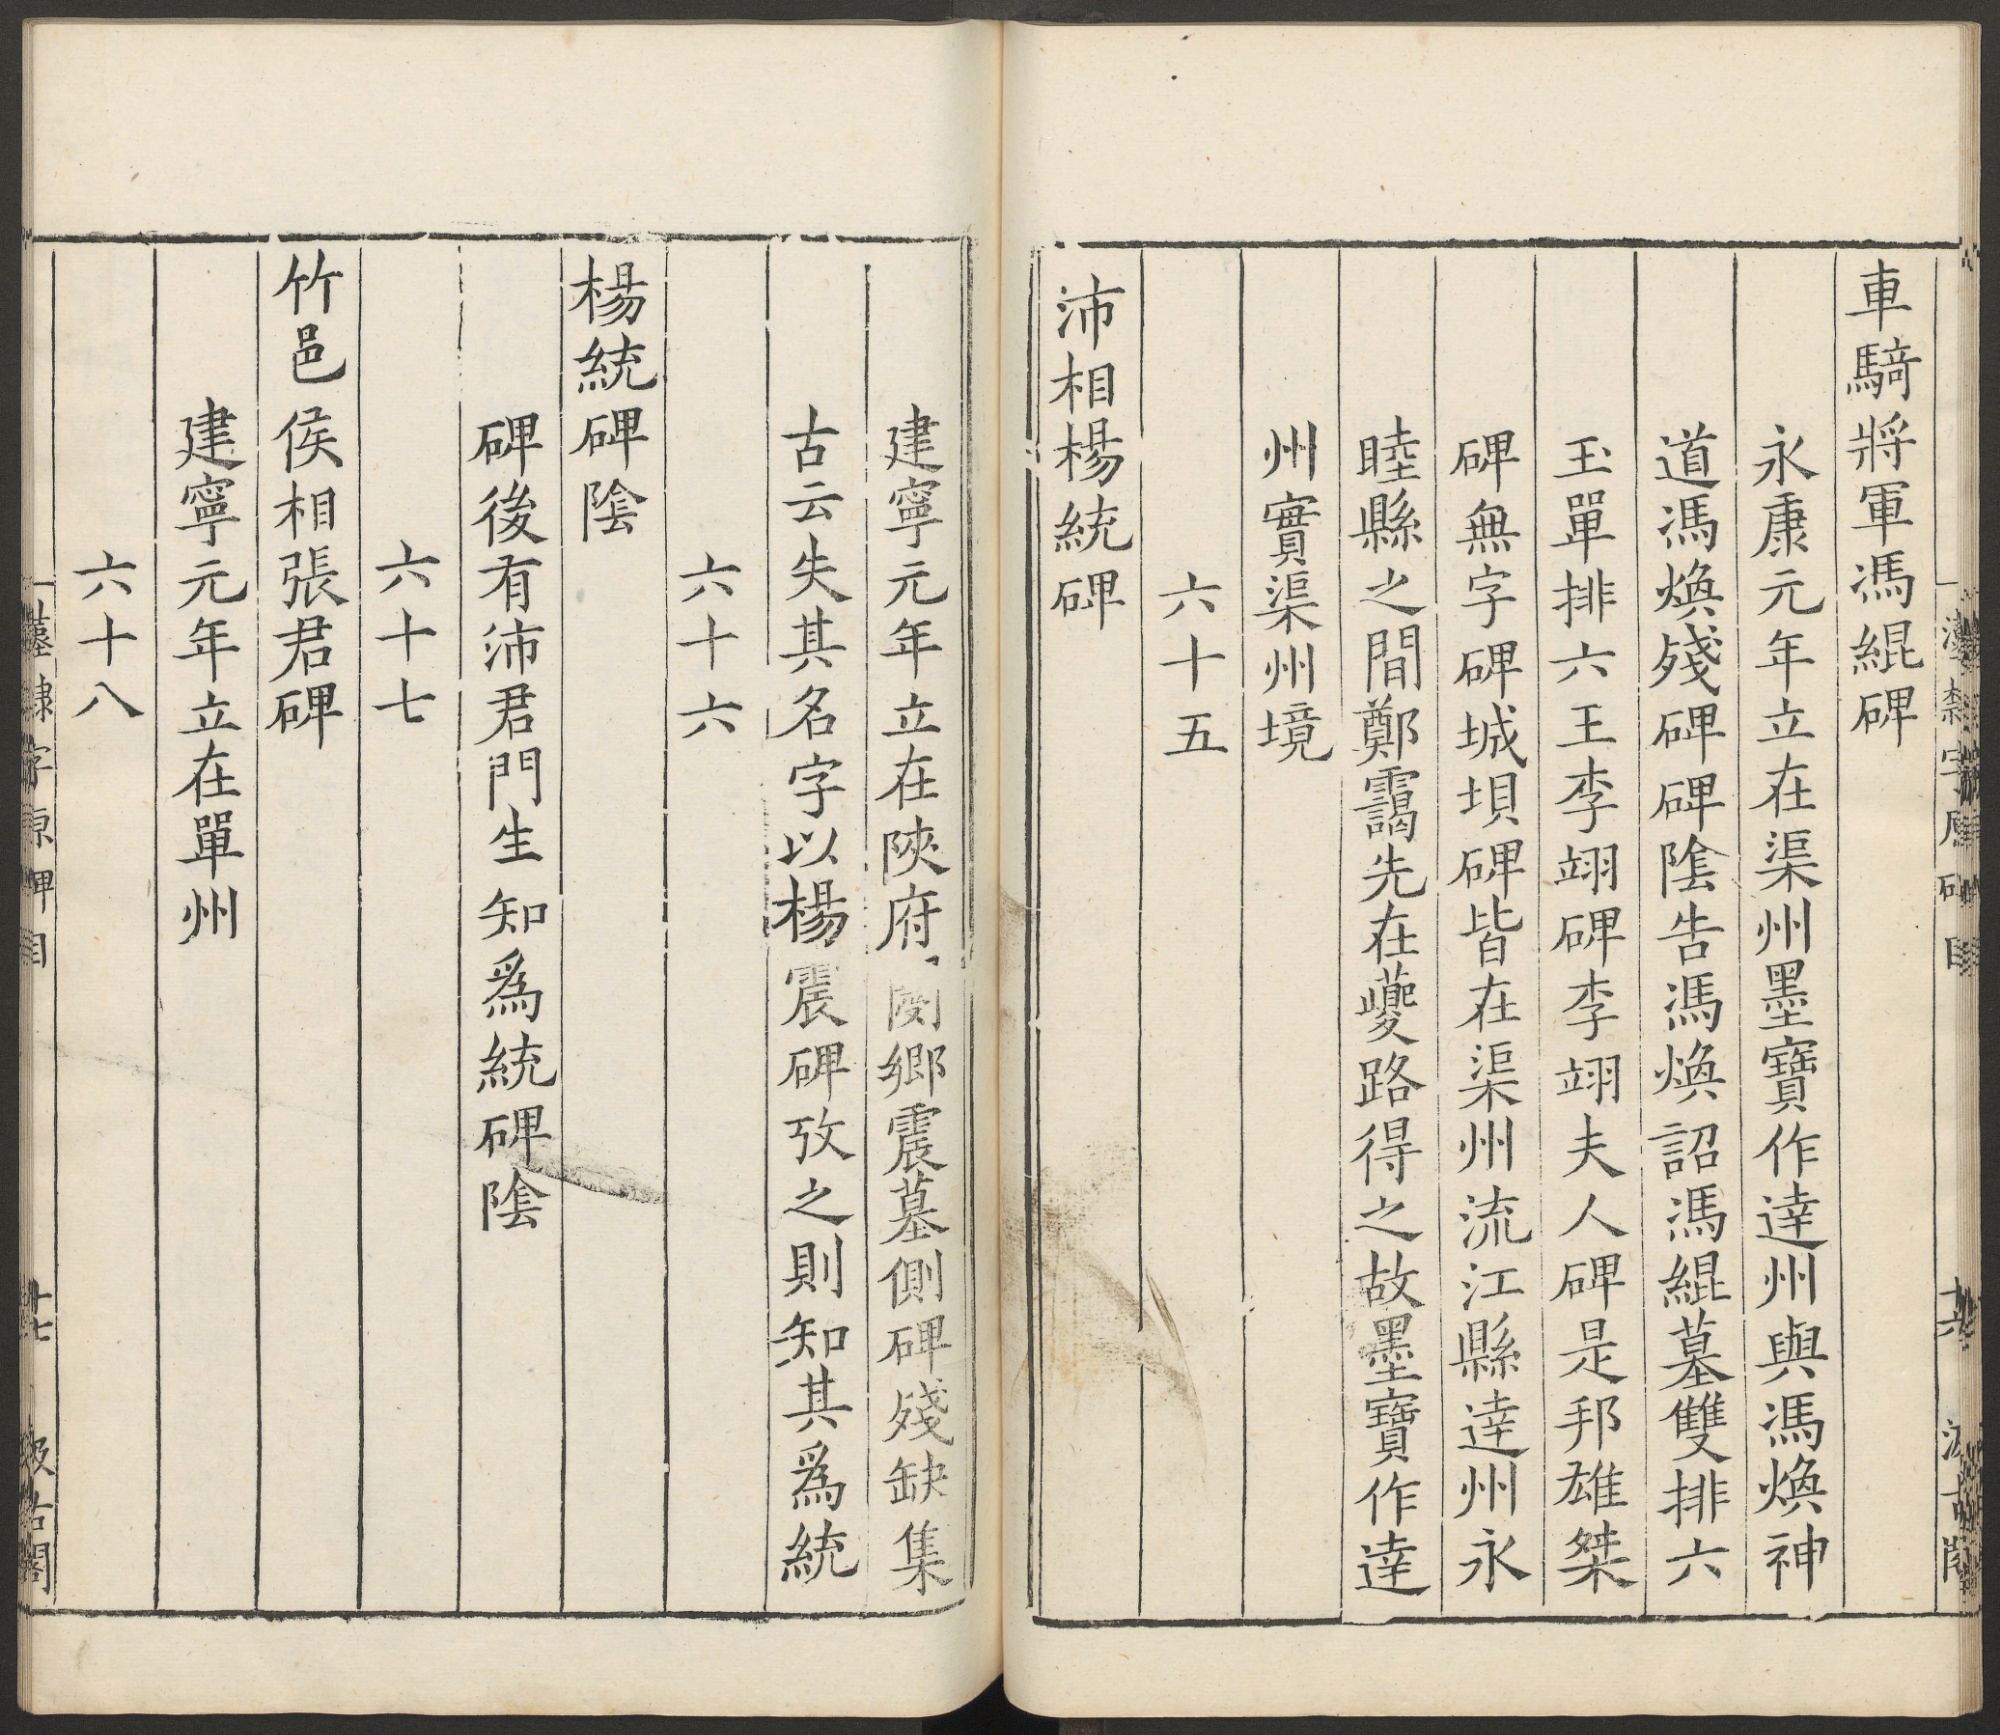 車騎將軍馮緄碑
永康元年立在渠州墨寶作達州與馮煥神
道馮煥殘碑碑陰告馮煥詔馮緄墓雙排六
玉單排六王李翊碑李翊夫人碑是邦雄桀
碑無字碑城垻碑皆在渠州流江縣達州永
睦縣之間鄭靄先在夔路得之故墨寶作達
州實渠州境
六十五
沛相楊統碑
建寧元年立在陝府閿鄉震墓側碑殘缺集
古云失其名字以楊震碑攷之則知其爲統
六十六
楊統碑陰
碑後有沛君門生知爲統碑陰
六十七
竹邑侯相張君碑
建寧元年立在單州
六十八
隸字原碑目 十七 汲古閣